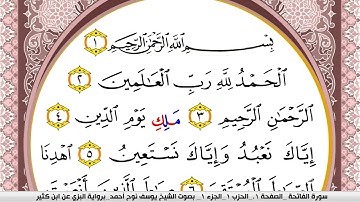 بِسْمِ اللَّهِ الرَّحْمَٰنِ الرَّحِيمِ ١
الْحَمْدُ لِلَّهِ رَبِّ الْعَالَمِينَ ٢
الرَّحْمَٰنِ الرَّحِيمِ ٣ مَلِكِ يَوْمِ الدِّينِ ٤
إِيَّاكَ نَعْبُدُ وَإِيَّاكَ نَسْتَعِينُ ٥ اهْدِنَا
سورة الفاتحة_الصفحة ١_ الحزب ١_الجزء ١_ بصوت الشيخ يوسف نوح أحمد_برواية البزي عن ابن كثير